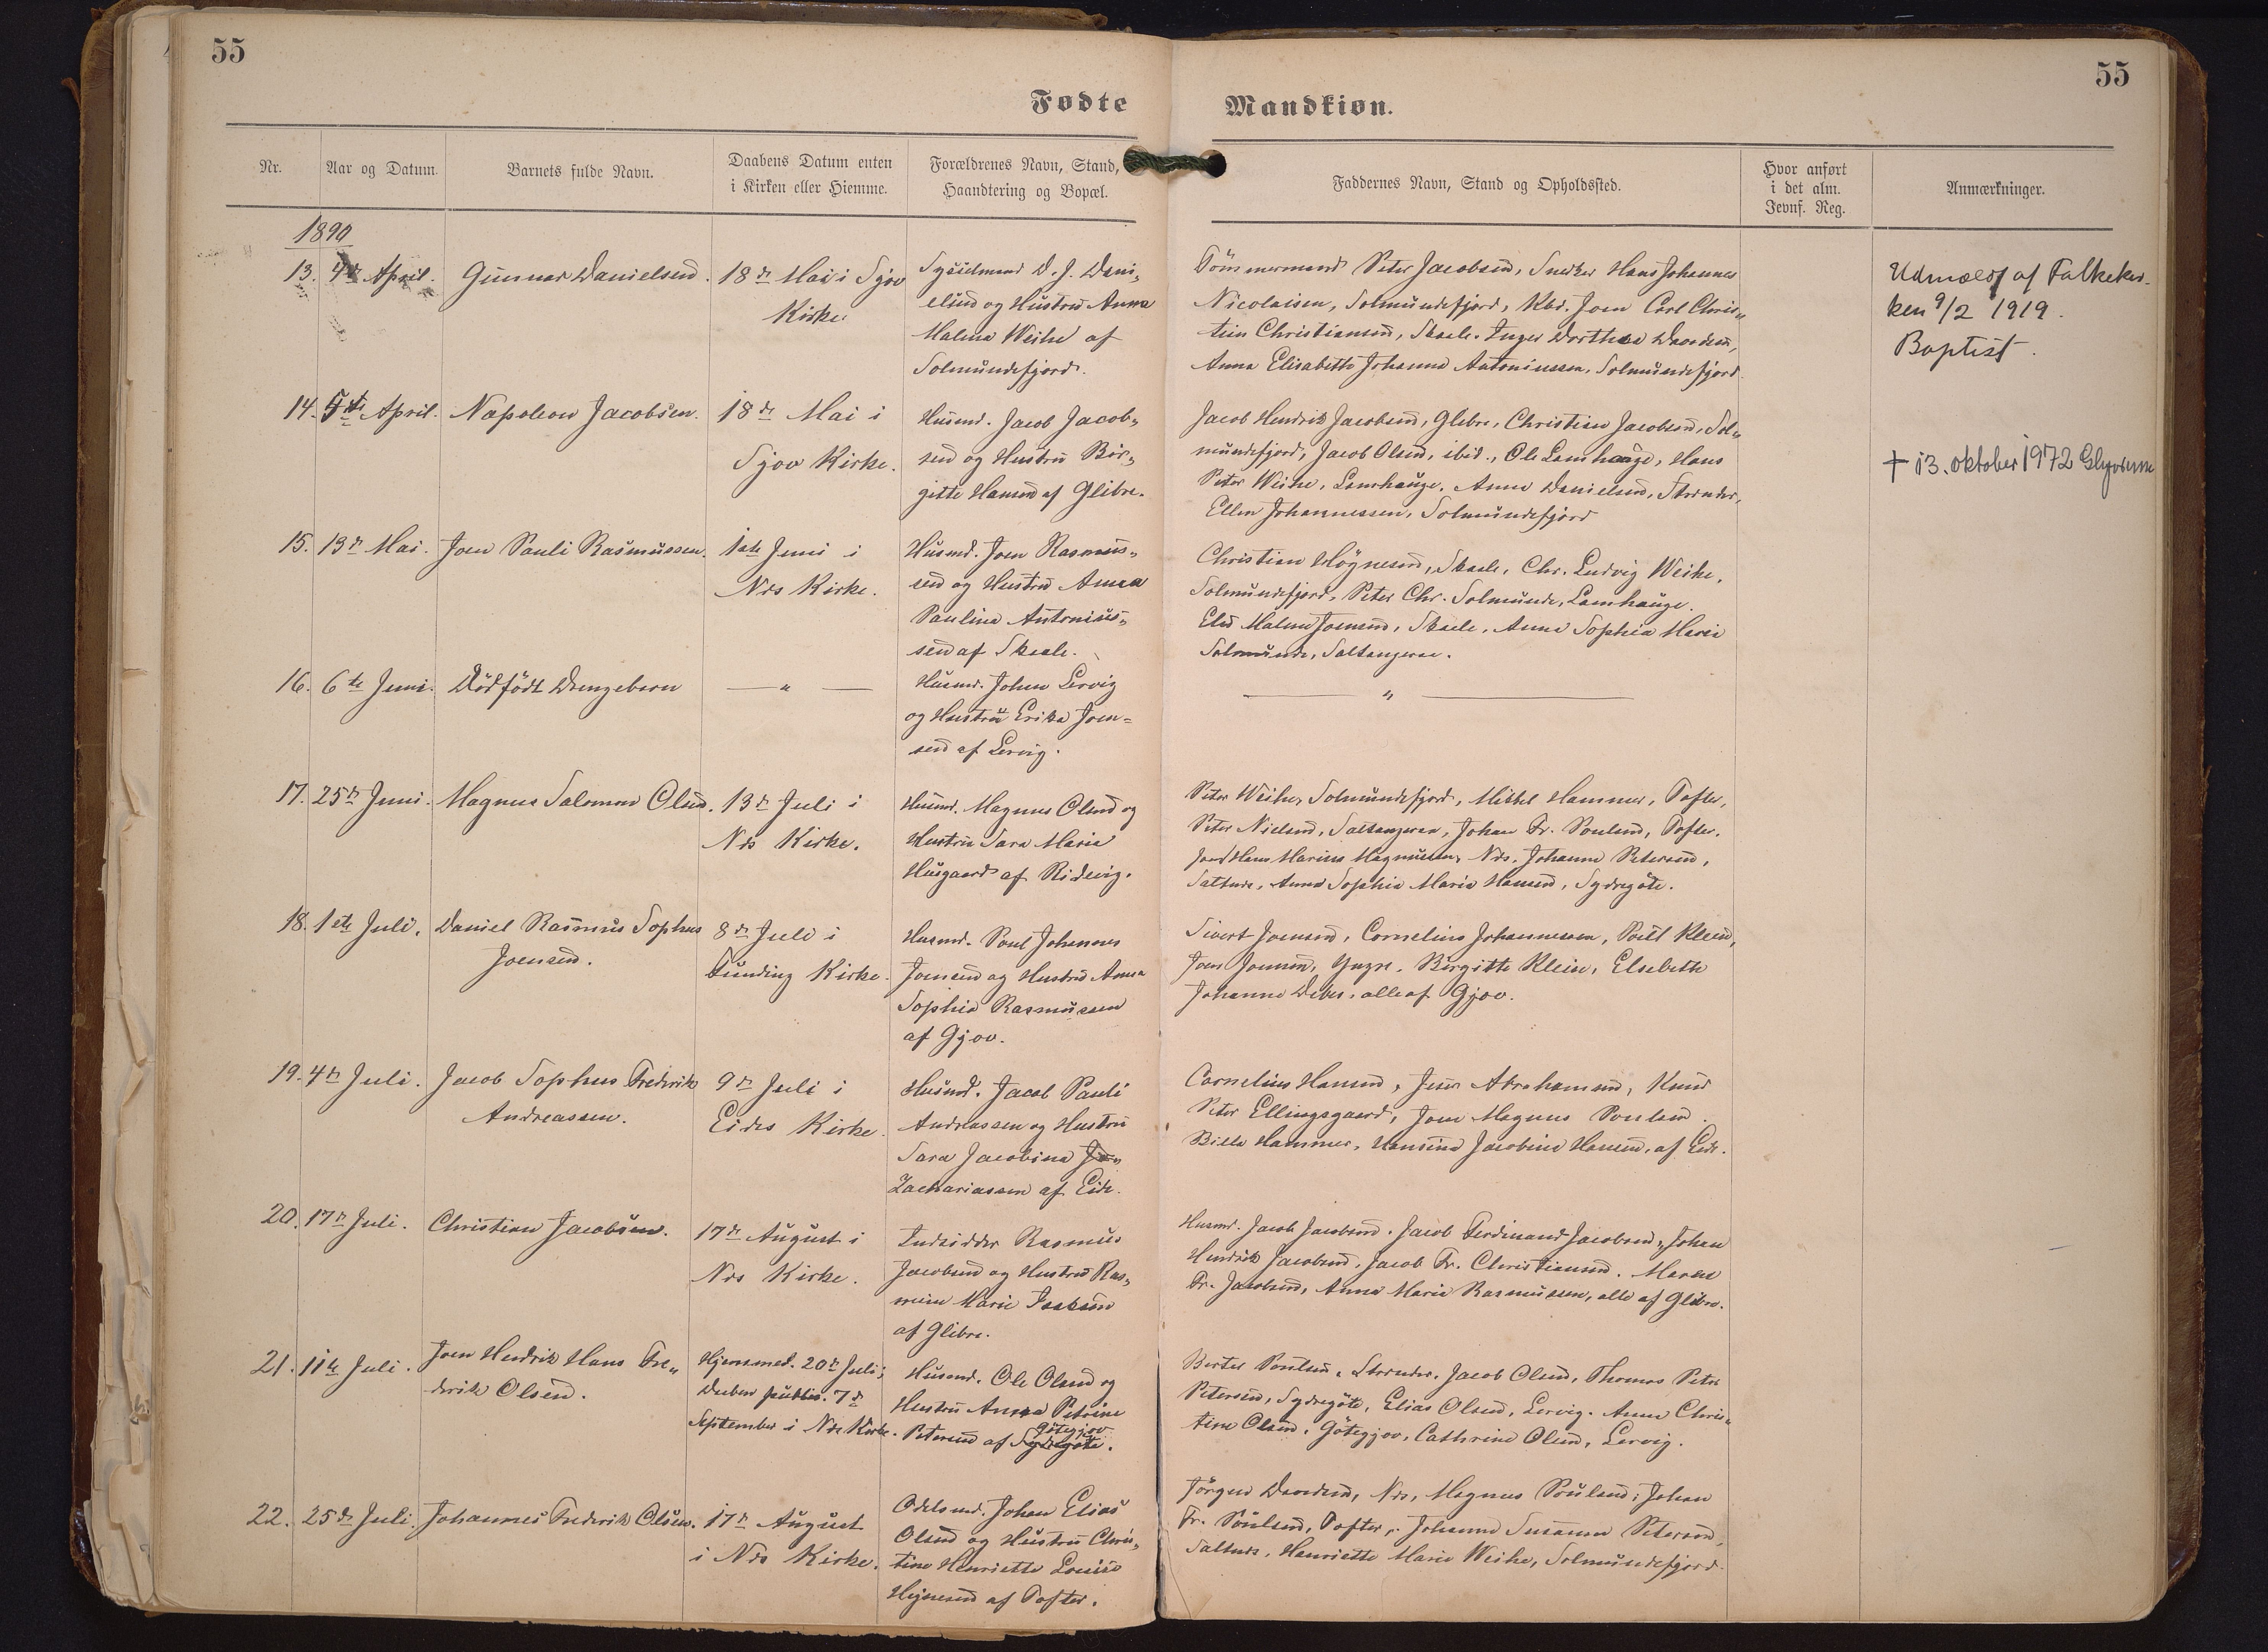 55
55
Fødte
Mandkiøn.
Nr.
Aar og Datum.
Barnets fulde Navn.
Daabens Datum enten
i Kirken eller Hiemme.
Forældrenes Navn, Stand,
Haandtering og Bopæl.
Faddernes Navn, Stand og Opholdssted.
Hvor anført
i det alm.
Jevnf. Reg.
Anmærkninger.
1890
13. 4de April. Gunnar Danielsen. 18de Mai i Sjov
Kirke.
Sysselmand D. J. Dani-
elsen og Hustru Anna
Malena Weihe af
Solmundefjord.
Tömmermand Peter Jacobsen, Snedker Hans Johannes
Nicolaisen, Solmundefjord, Kbd. Joen Carl Chris-
tian Christiansen, Skaale. Inger Dorthea
Anna Elisabeth Johanna Antoniussen, Solmundefjord.
Udmeldt af Folkekir-
ken 9/2 1919.
Baptist.
14. 5te April. Napoleon Jacobsen. 18de Mai i
Sjov Kirke.
Husmd. Jacob Jacob-
sen og Hustru Bir-
gitte Hansen af Glibre.
Jacob Hendrik Jacobsen, Glibre, Christian Jacobsen, Sol-
mundefjord, Jacob Olsen, ibid., Ole Lamhauge, Hans
Peter Weihe, Lamhauge. Anna Danielsen, Strender,
Ellen Johannessen, Solmundefjord
† 13. oktober 1972
15. 13de Mai. Joen Pauli Rasmussen. 1ste Juni i
Nes Kirke.
Husmd. Joen Rasmus-
sen og Hustru Anna
Paulina Antonius-
sen af Skaale.
Christian Högnesen, Skaale, Chr. Ludvig Weihe,
Solmundefjord, Peter Chr. Solmunde, Lamhauge.
Else Malene Joensen, Skaale, Anna Sophia Maria
Solmunde, Saltangeraa.
16. 6te Juni. Dödfödt Drengebarn — „ —
Husmd. Johan Lervig
og Hustru Erika Joen-
sen af Lervig.
— „ —
17. 25de Juni. Magnus Salomon Olsen. 13de Juli i
Nes Kirke.
Husmd. Magnus Olsen og
Hustru Sara Maria
Husgaard af Ridevig.
Peter Weihe, Solmundefjord, Mikkel Hammer, Tofter,
Peter Nielsen, Saltangeraa, Johan Fr. Poulsen, Tofter.
Hans Marius Magnussen, Nes. Johanna Petersen,
Saltnes, Anna Sophia Maria Hansen, Sydregöte.
18. 1ste Juli. Daniel Rasmus Sophus
Joensen.
8de Juli i
Funding Kirke.
Husmd. Poul Johannes
Joensen og Hustru Anna
Sophia Rasmussen
af Gjov.
Sivert Joensen, Cornelius Johannessen, Poul Klein,
Joen Joensen, Yngre. Birgitte Klein, Elsebeth
Johanna Debes, alle af Gjov.
19. 4de Juli. Jacob Sophus Frederik
Andreassen.
9de Juli i
Eides Kirke.
Husmd. Jacob Pauli
Andreassen og Hustru
Sara Jacobina
Zachariassen af Eide.
Cornelius Hansen, Abrahamsen, Knud
Peter Ellingsgaard, Joen Magnus Poulsen.
Billa Hammer, Hansina Jacobina Hansen, af Eide.
20. 17de Juli. Christian Jacobsen. 17de August i
Nes Kirke.
Indsidder Rasmus
Jacobsen og Hustru Ras-
mine Marie
af Glibre.
Husmd. Jacob Jacobsen. Jacob Ferdinand Jacobsen, Johan
Hendrik Jacobsen, Jacob Fr. Christiansen. Maren
Fr. Jacobsen, Anna Maria Rasmussen, alle af Glibre.
21. 11te Juli. Joen Hendrik Hans Fre-
derik Olsen.
Hjemmed. 20de Juli;
Daaben public. 7de
September i Nes Kirke.
Husmd. Ole Olsen og
Hustru Anna Petrine
Petersen af Sydregöte.
Götegjov
Poulsen, Strender. Jacob Olsen, Thomas Peter
Petersen, Sydregöte, Elias Olsen, Lervig. Anna Chris-
tine Olsen, Götegjov, Cathrine Olsen, Lervig.
22. 25de Juli. Johannes Frederik Olsen. 17de August
i Nes Kirke.
Odelsmd. Johan Elias
Olsen og Hustru Chris-
tine Henriette Louise
Højnesen af Tofter.
Jörgen Davidsen, Nes, Magnus Poulsen, Johan
Fr. Poulsen, Tofter. Johanna Susanna Petersen,
Saltnes. Henriette Marie Weihe, Solmundefjord.